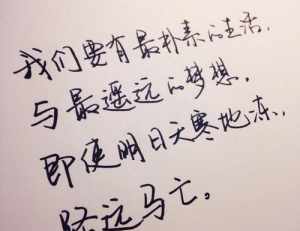 我们要有最朴素的生活，
与最遥远的梦想，
即使明日天寒地冻，
路远马亡。